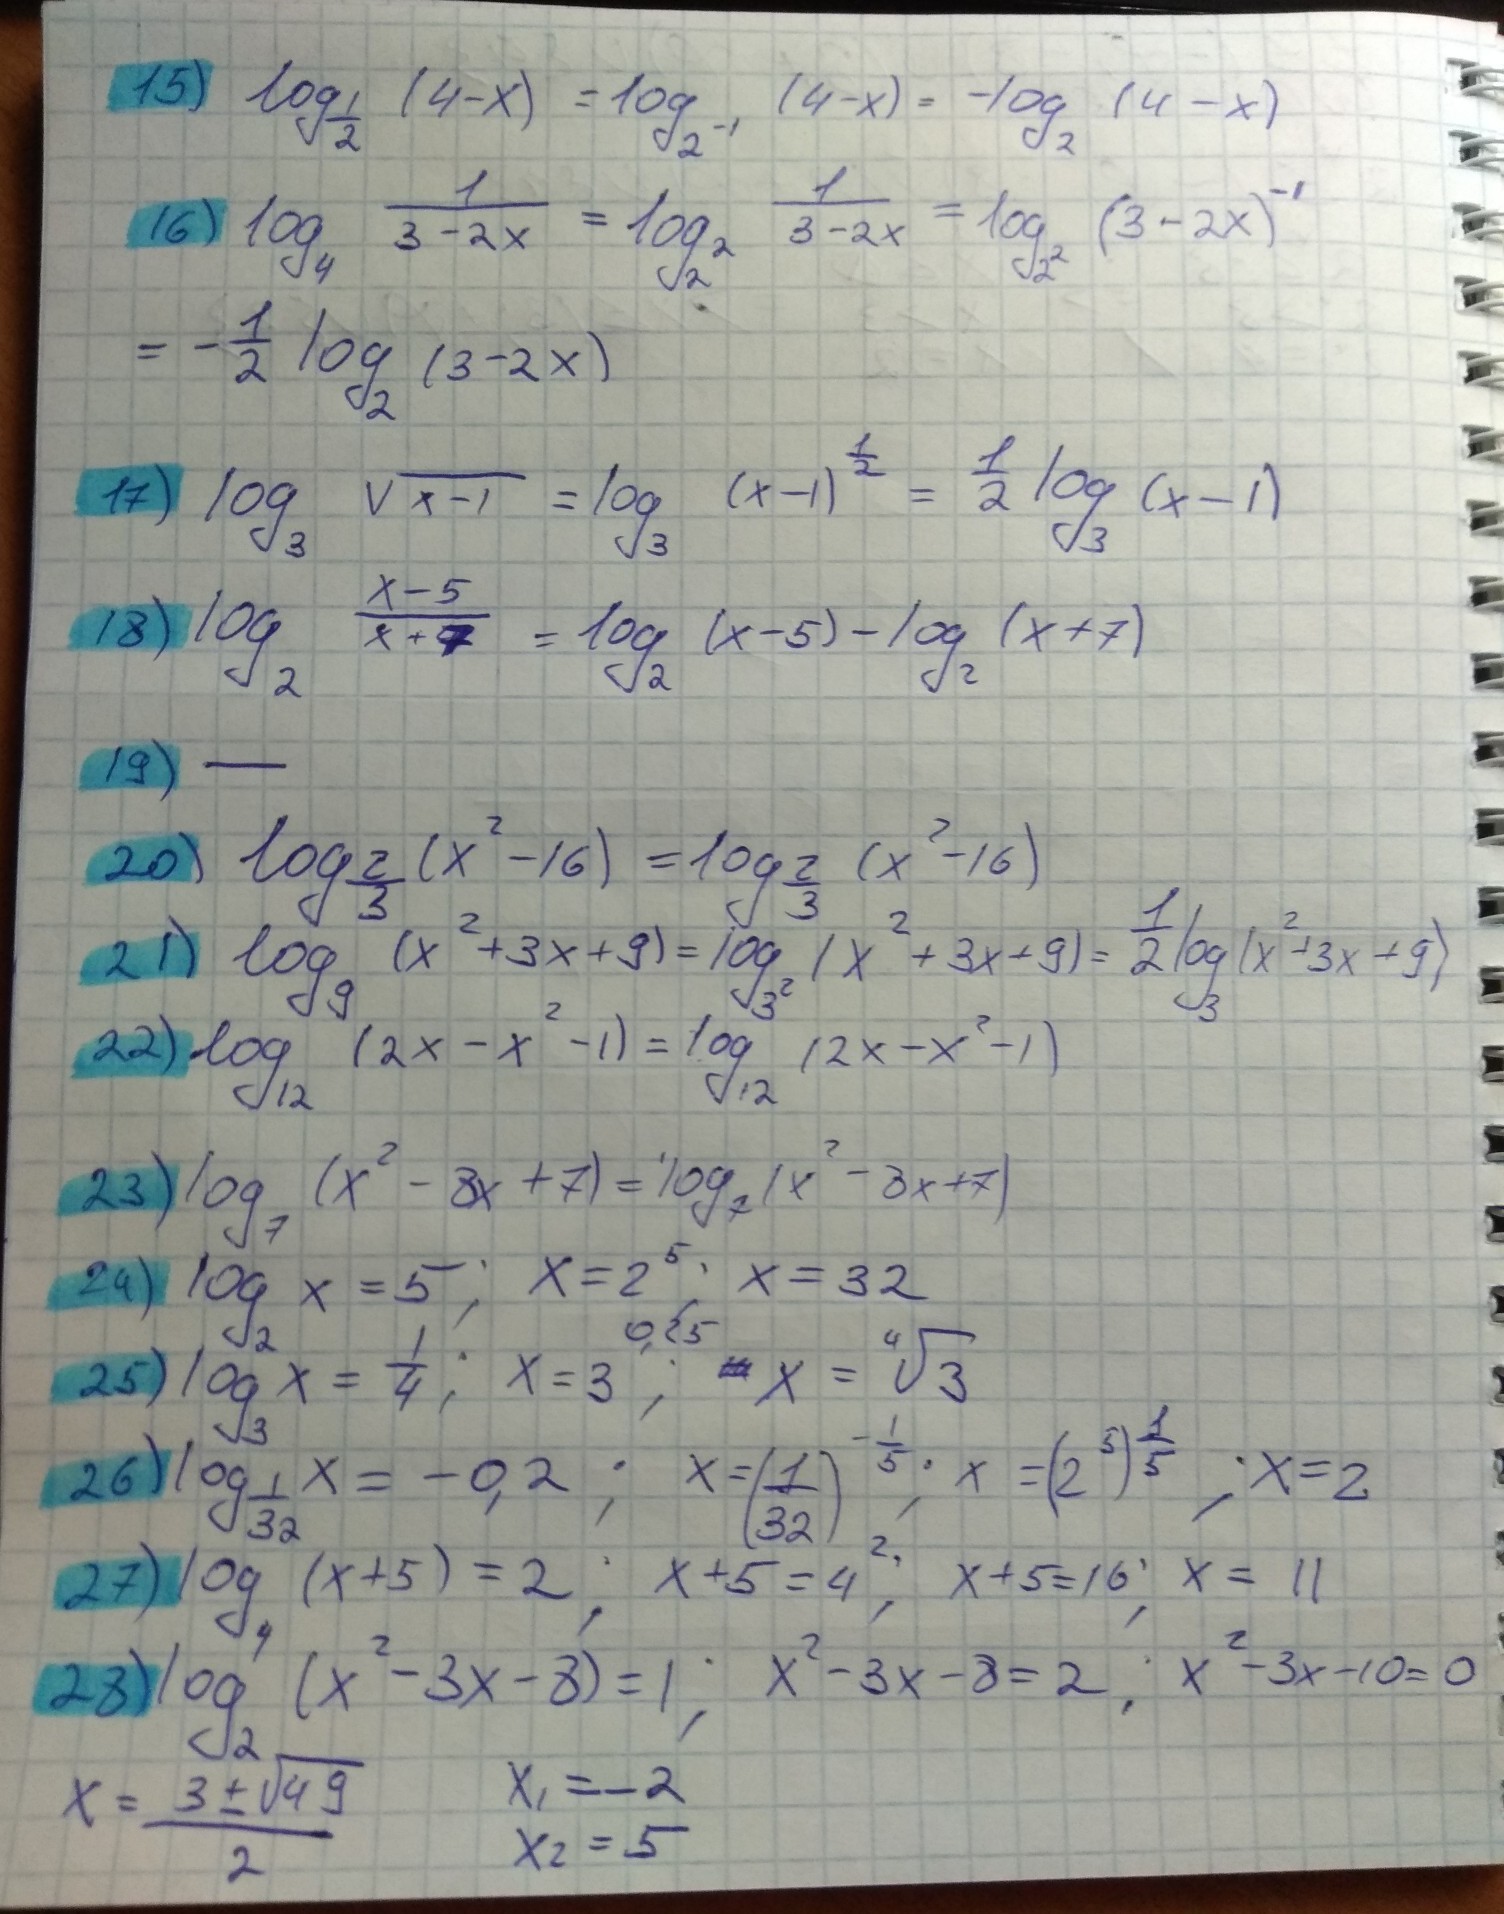 15) log_{1/2} (4-x) = log_{2^{-1}} (4-x) = -log_2 (4-x)
16) log_4 1/(3-2x) = log_{2^2} 1/(3-2x) = log_{2^2} (3-2x)^{-1}
= -1/2 log_2 (3-2x)
17) log_3 √(x-1) = log_3 (x-1)^{1/2} = 1/2 log_3 (x-1)
18) log_2 (x-5)/(x+7) = log_2 (x-5) - log_2 (x+7)
19) —
20) log_{2/3} (x²-16) = log_{2/3} (x²-16)
21) log_9 (x²+3x+9) = log_{3²} (x²+3x+9) = 1/2 log_3 (x²+3x+9)
22) log_12 (2x-x²-1) = log_12 (2x-x²-1)
23) log_7 (x²-8x+7) = log_7 (x²-8x+7)
24) log_2 x = 5; x = 2^5; x = 32
25) log_3 x = 1/4; x = 3^{0,25}; x = ⁴√3
26) log_{1/32} x = -0,2; x = (1/32)^{-1/5}; x = (2^5)^{1/5}; x = 2
27) log_4 (x+5) = 2; x+5 = 4²; x+5 = 16; x = 11
28) log_2 (x²-3x-8) = 1; x²-3x-8 = 2; x²-3x-10 = 0
x = (3±√49)/2 x₁ = -2
x₂ = 5